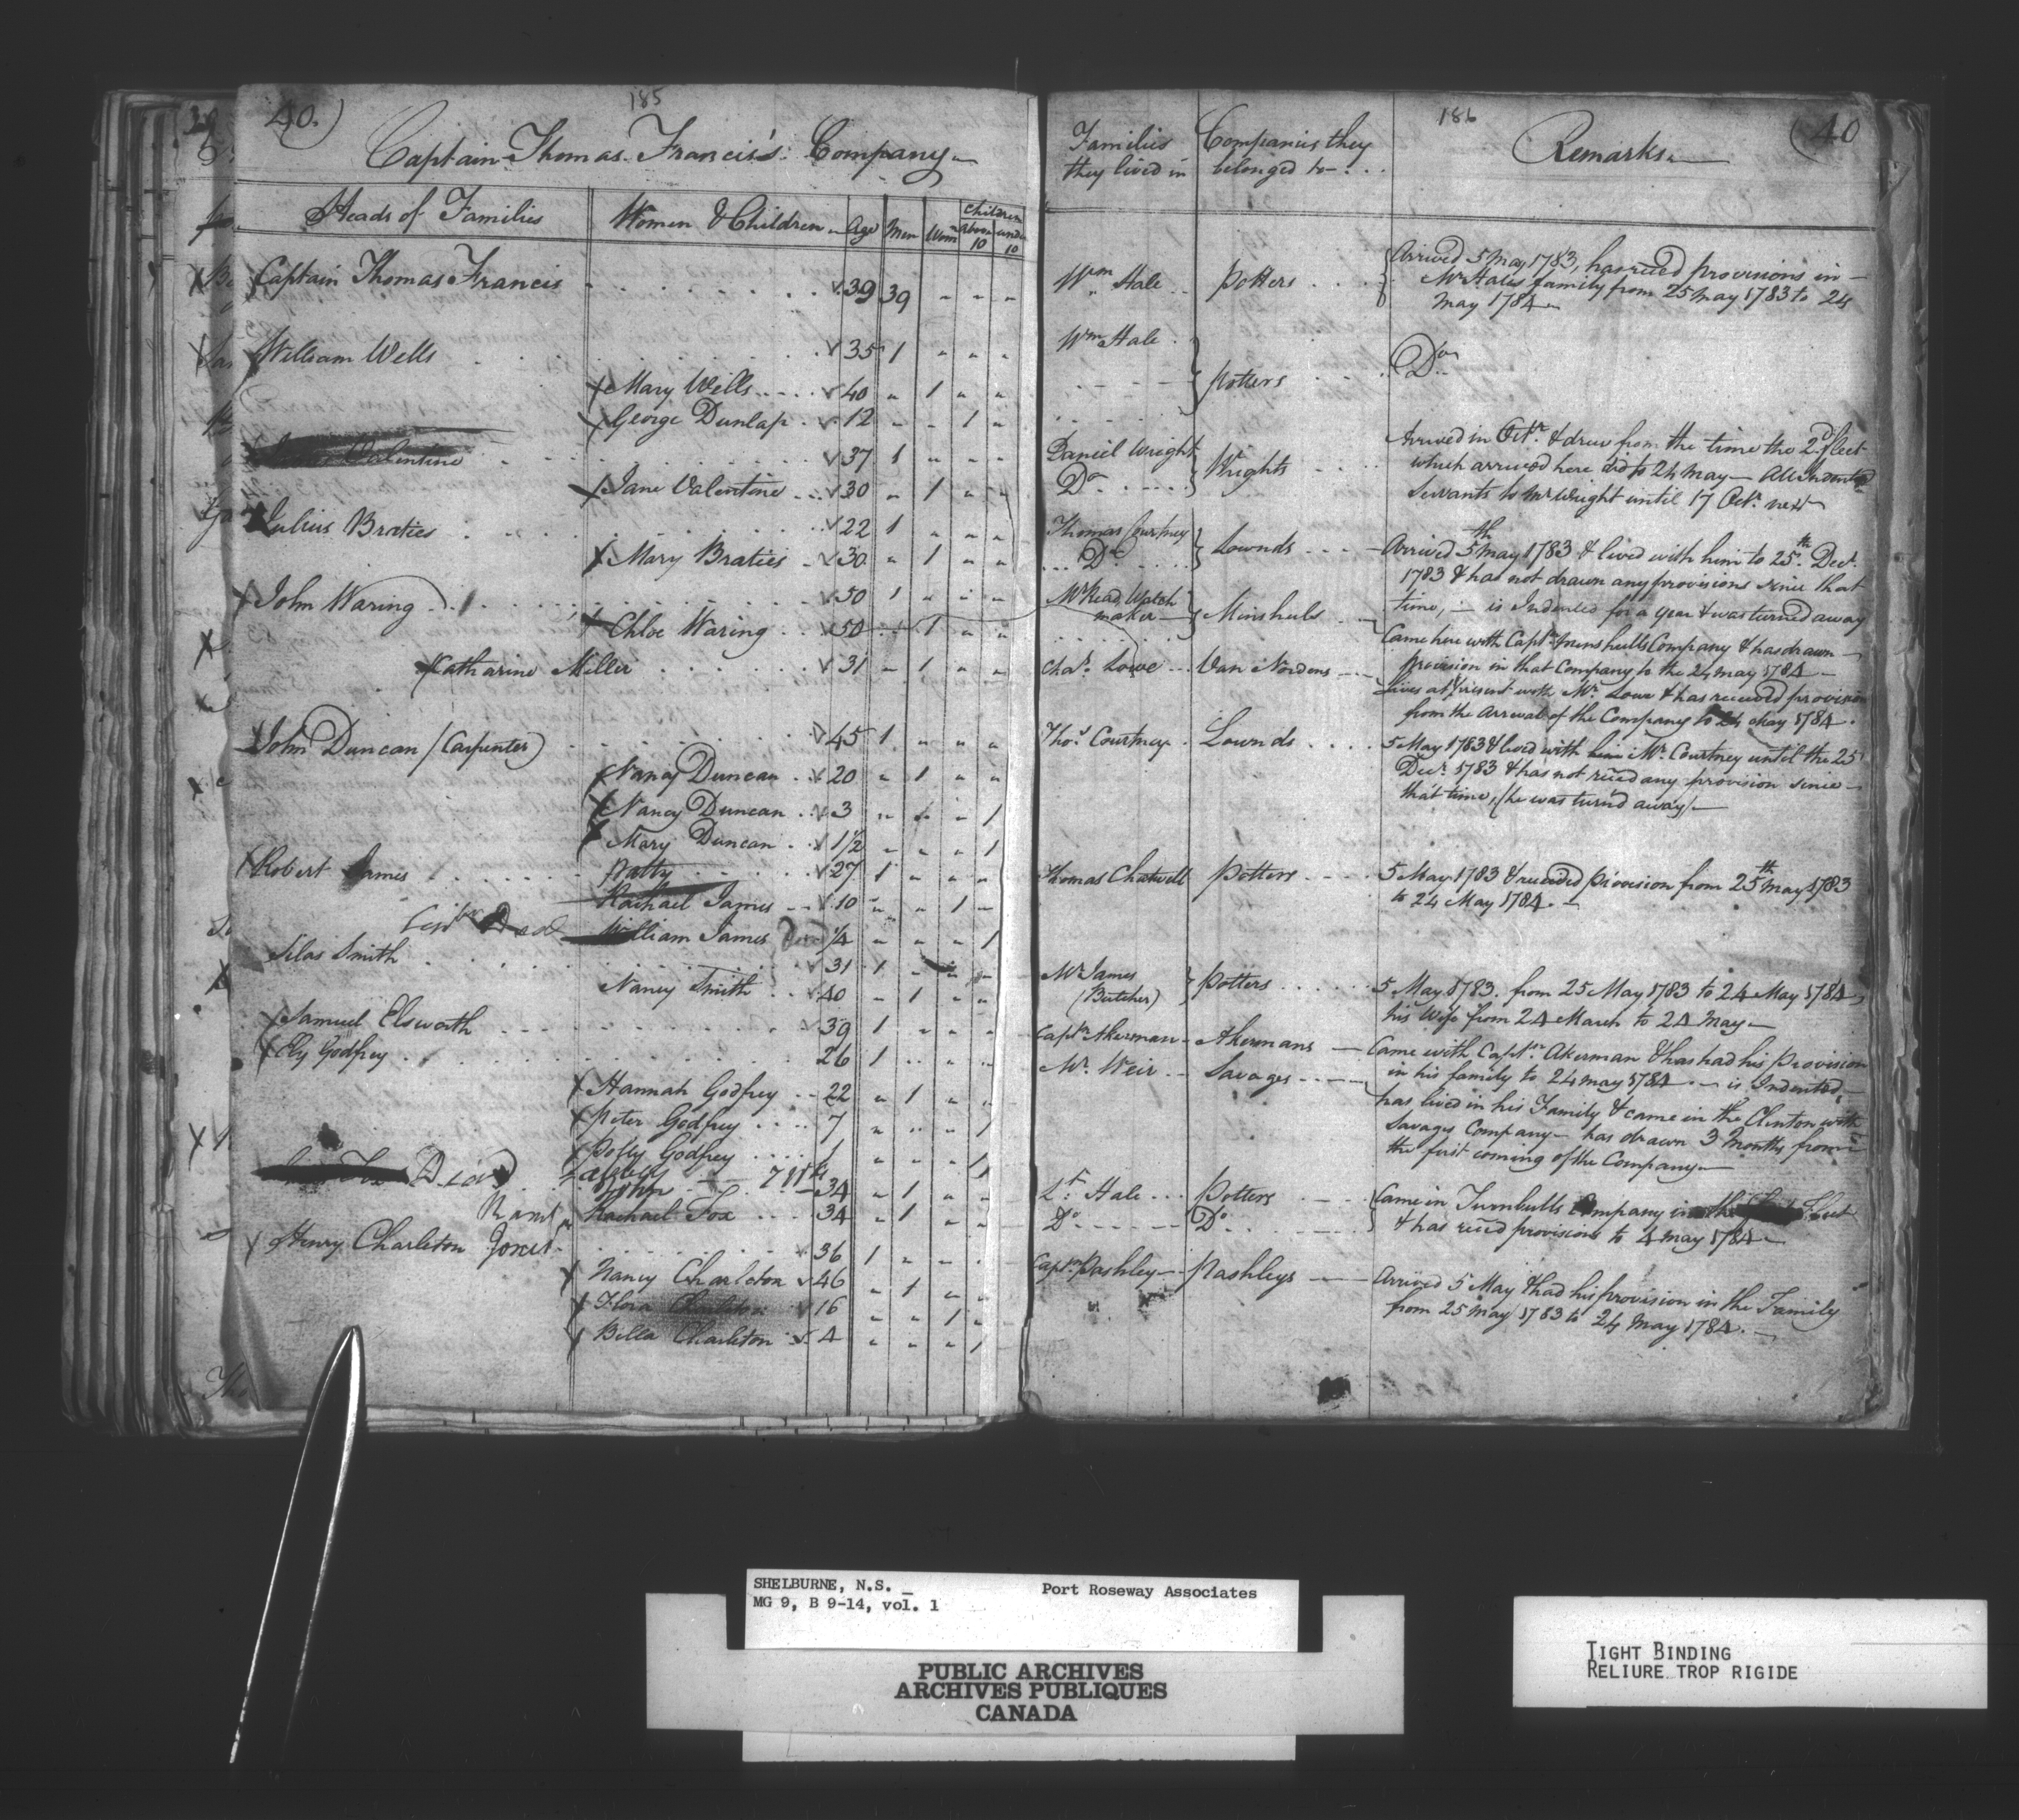 40.)
185
Captain Thomas Francis's Company
Heads of Families
Women & Children
Age
Men
Wom
Children
above 10
under 10
Captain Thomas Francis 39 39 " " "
William Wells 35 1 " " "
Mary Wells 40 " 1 " "
George Dunlap 12 " " 1 "
Valentine 37 1 " " "
Jane Valentine 30 " 1 " "
Julius Braties 22 1 " " "
Mary Braties 30 " 1 " "
John Waring 50 1 " " "
Chloe Waring 50 " 1 " "
Catharine Miller 31 " 1 " "
John Duncan (Carpenter) 45 1 " " "
Nancy Duncan 20 " 1 " "
Nancy Duncan 3 " " " 1
Mary Duncan 1½ " " " 1
Robert James 27 1 " " "
Patty
Rachael James 10 " " 1 "
Dead
William James ¼ " " " 1
Silas Smith 31 1 " " "
Nancy Smith 40 " 1 " "
Samuel Elsworth 39 1 " " "
Ely Godfrey 26 1 " " "
Hannah Godfrey 22 " 1 " "
Peter Godfrey 7 " " " 1
Polly Godfrey 1 " " " 1
Fox Dead
John 34 " 1 " "
Rachael Fox 34 " 1 " "
Henry Charleton 36 1 " " "
Nancy Charleton 46 " 1 " "
Flora Charleton 16 " " 1 "
Bella Charleton 4 " " " 1
186
(40
Families they lived in
Companies they belonged to
Remarks
Wm Hale
Potters
Arrived 5 May 1783, has recd provisions in
Mr Hales family from 25 May 1783 to 24
May 1784
Wm Hale
Potters
Do
Daniel Wright
Do
Wrights
Arrived in Octr. & drew from the time the 2d. fleet
which arrived here did to 24 May— All Indented
Servants to Mr Wright until 17 Octr. next
Thomas Courtney
Do
Lownds
Arrived 5th May 1783 & lived with him to 25th Decr.
1783 & has not drawn any provisions since that
time, — is Indented for a year & was turned away
Mr Read, Watch
maker
Minshuls
Came here with Captn Minshulls Company & has drawn
provision in that Company to the 24 May 1784
Chas. Lowe
Van Nordens
Lives at present with Mr. Lowe & has received provision
from the Arrival of the Company to 24 May 1784.
Thos. Courtney
Lownds
5 May 1783 & lived with him Mr. Courtney until the 25
Decr. 1783 & has not recd any provision since
that time, (he was turn'd away)
Thomas Chatwell
Potters
5 May 1783 & received provision from 25th May 1783
to 24 May 1784.
Mr James
(Butcher)
Potters
5 May 1783. from 25 May 1783 to 24 May 1784,
his Wife from 24 March to 24 May
Captn Akerman
Akermans
Came with Captn. Akerman & has had his Provision
in his family to 24 May 1784. — is Indented,
Mr. Weir
Savages
has lived in his Family & came in the Clinton with
Savages Company— has drawn 3 Months from
the first coming of the Company
Lt. Hale
Potters
Do
Do
Came in Turnbulls Company in the Fleet
& has recd provisions to 4 May 1784
Captn Pashley
Pashleys
Arrived 5 May & had his provision in the Family
from 25 May 1783 to 24 May 1784.
SHELBURNE, N.S. _ Port Roseway Associates
MG 9, B 9-14, vol. 1
PUBLIC ARCHIVES
ARCHIVES PUBLIQUES
CANADA
TIGHT BINDING
RELIURE TROP RIGIDE